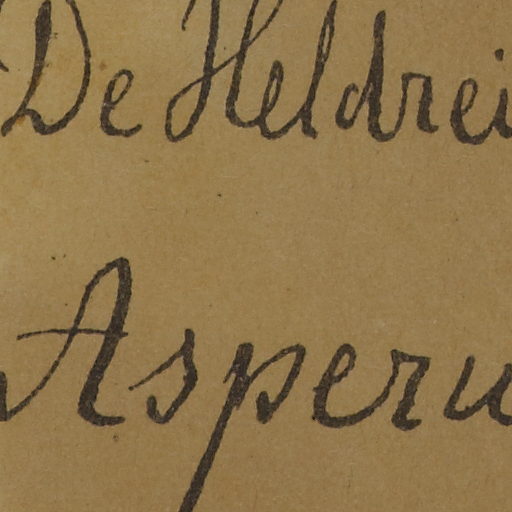 De Heldrei
Asperu